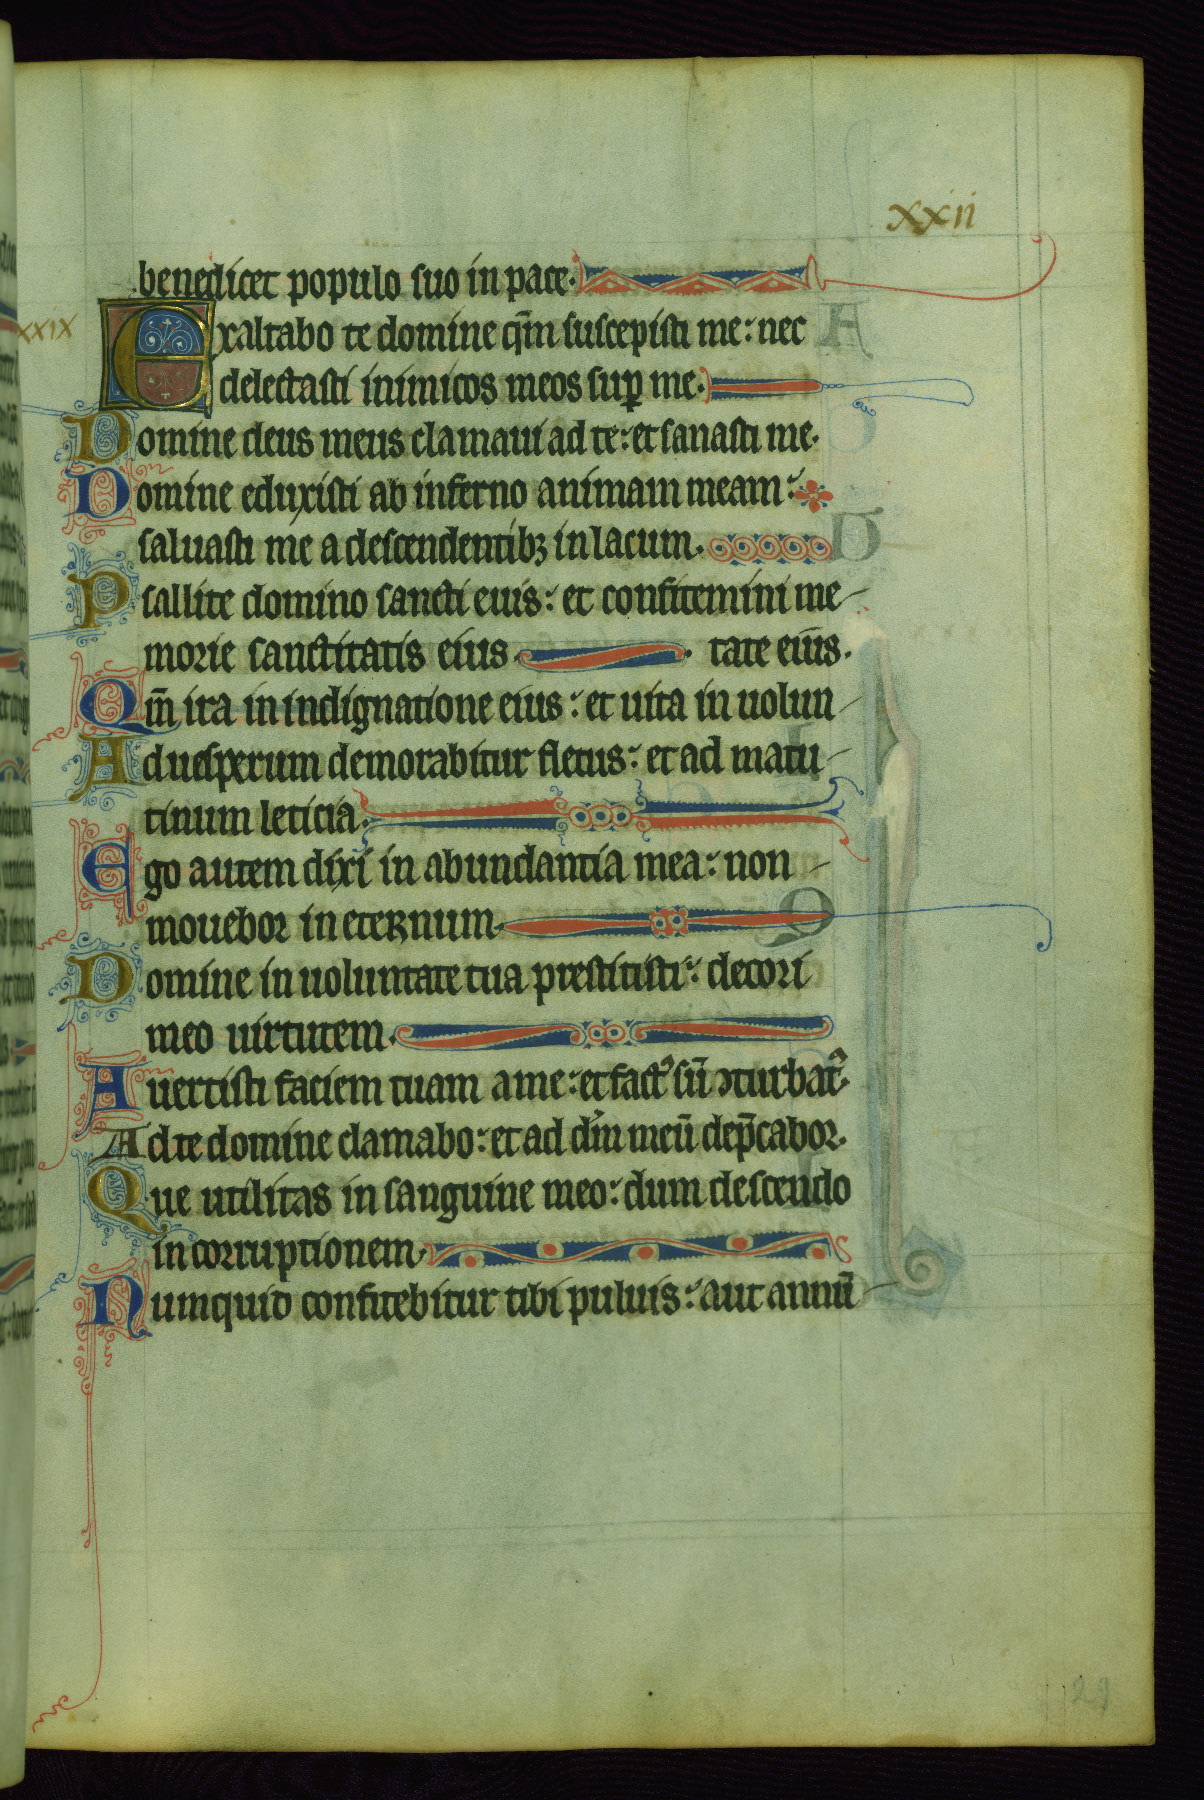 xxii
benedicet populo suo in pace.
XXIX
Exaltabo te domine qm̄ suscepisti me: nec
delectasti inimicos meos sup me.
Domine deus meus clamaui ad te: et sanasti me.
Domine eduxisti ab inferno animam meam:
saluasti me a descendentibꝫ in lacum.
Psallite domino sancti eius: et confitemini me
morie sanctitatis eius. tate eius.
Qm̄ ira in indignatione eius: et uita in uolun
Ad uesperum demorabitur fletus: et ad matu
tinum leticia.
Ego autem dixi in abundantia mea: non
mouebor in eternum.
Domine in uoluntate tua prestitisti: decori
meo uirtutem.
Auertisti faciem tuam a me: et factꝰ sū ꝯturbatꝰ.
Ad te domine clamabo: et ad dm̄ meū dep̄cabor.
Que utilitas in sanguine meo: dum descendo
in corruptionem.
Numquid confitebitur tibi puluis: aut annū
29